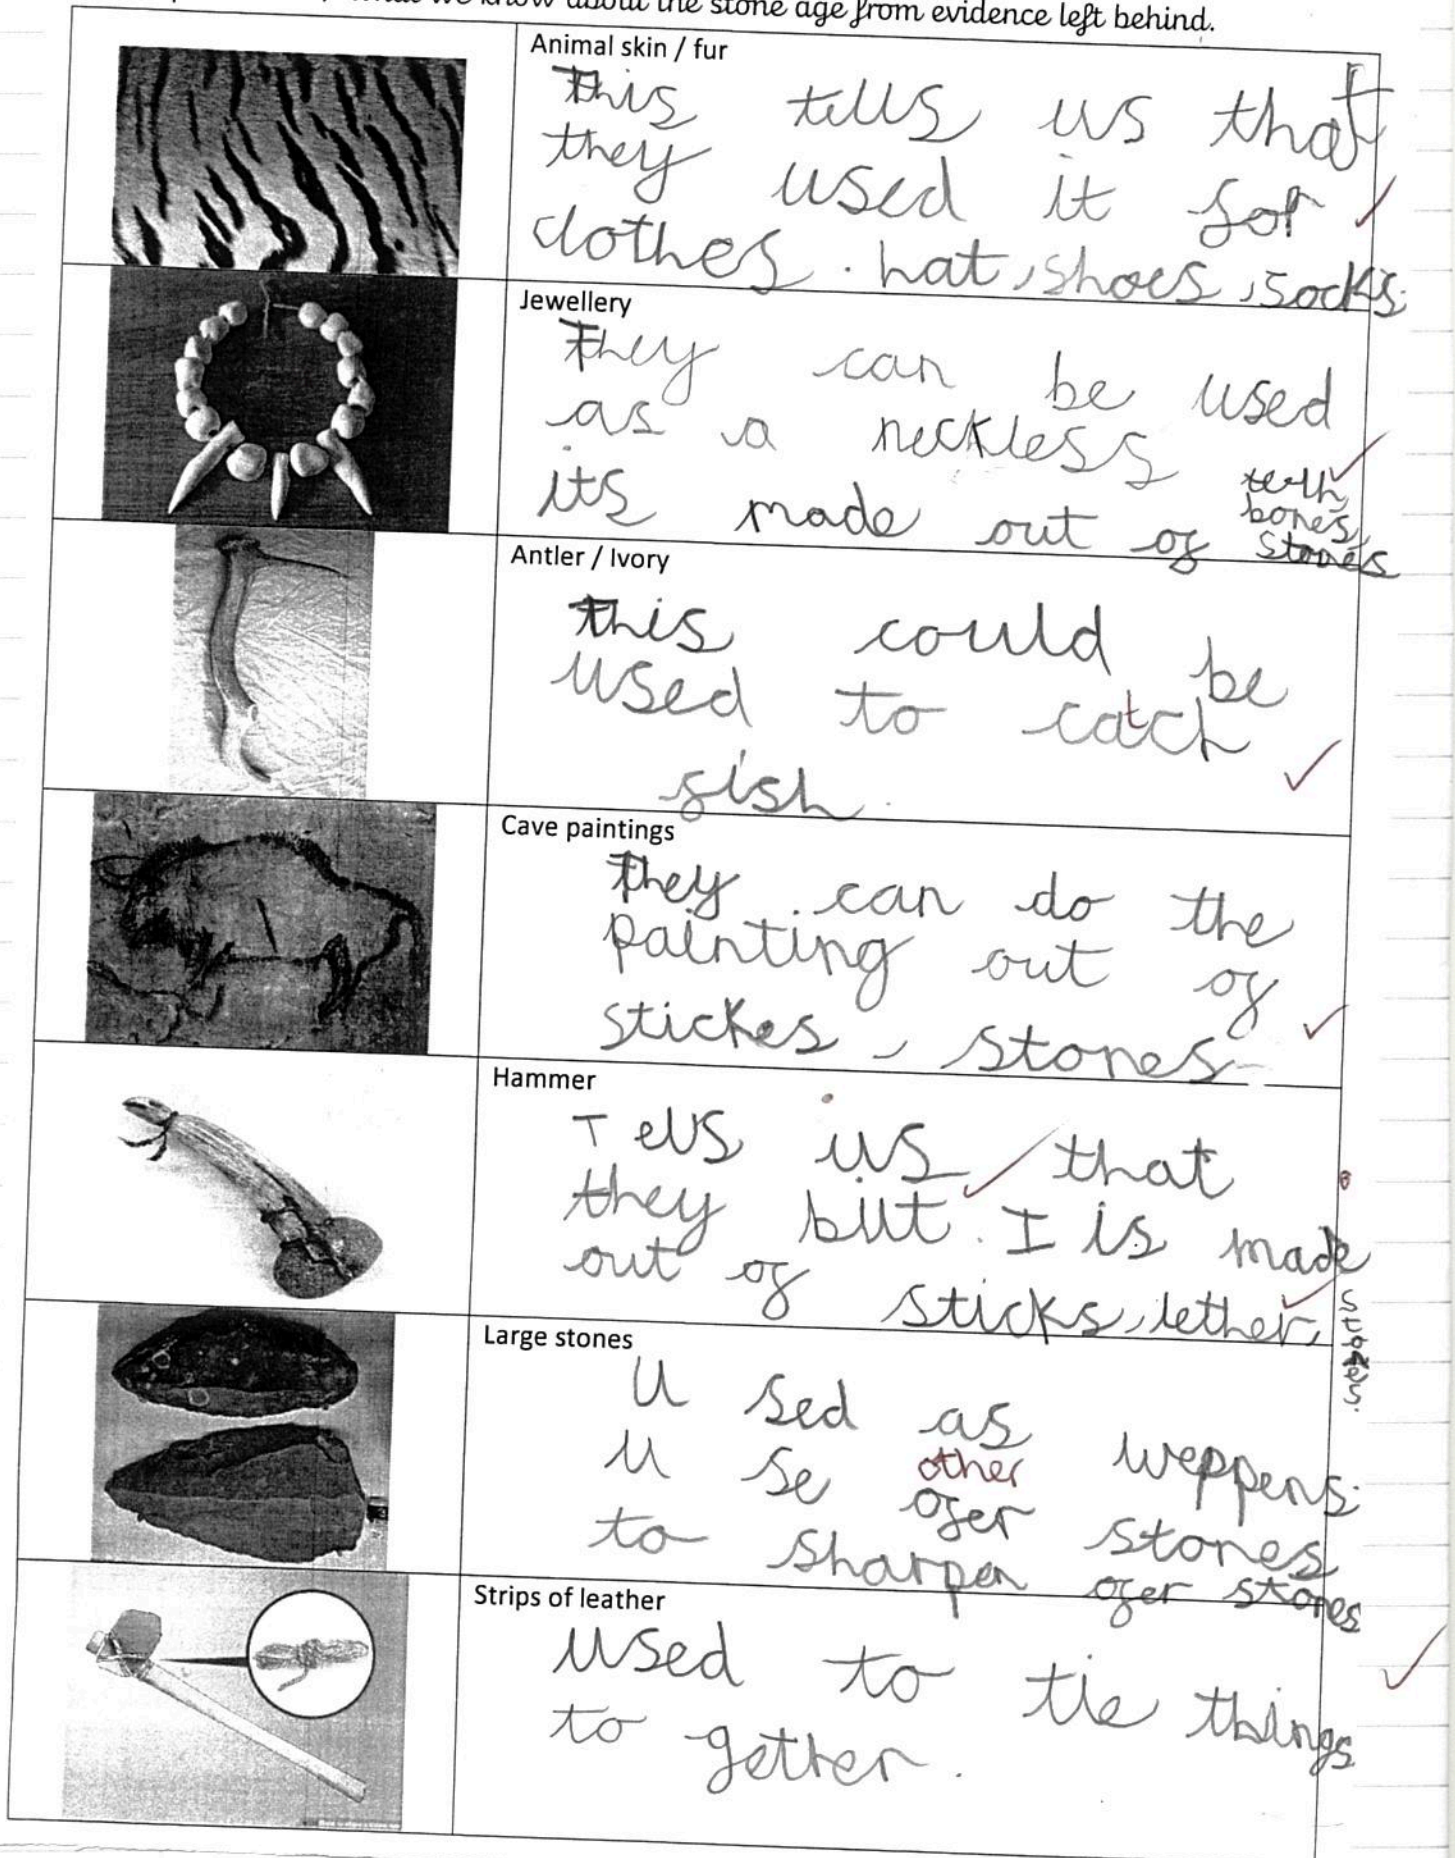 what we know about the stone age from evidence left behind.
Animal skin / fur
This tells us that
they used it for
clothes. hat, shoes, socks.
Jewellery
They can be used
as a neckless
its made out of teeth,
bones,
stones
Antler / Ivory
this could be
used to catch
fish.
Cave paintings
They can do the
painting out of
stickes, stones
Hammer
Tells us that
they biut. I is made
out of sticks, lether,
stones.
Large stones
U sed as weppens.
other
U se ofer stones
to sharpen ofer stones
Strips of leather
used to tie things
to gether.